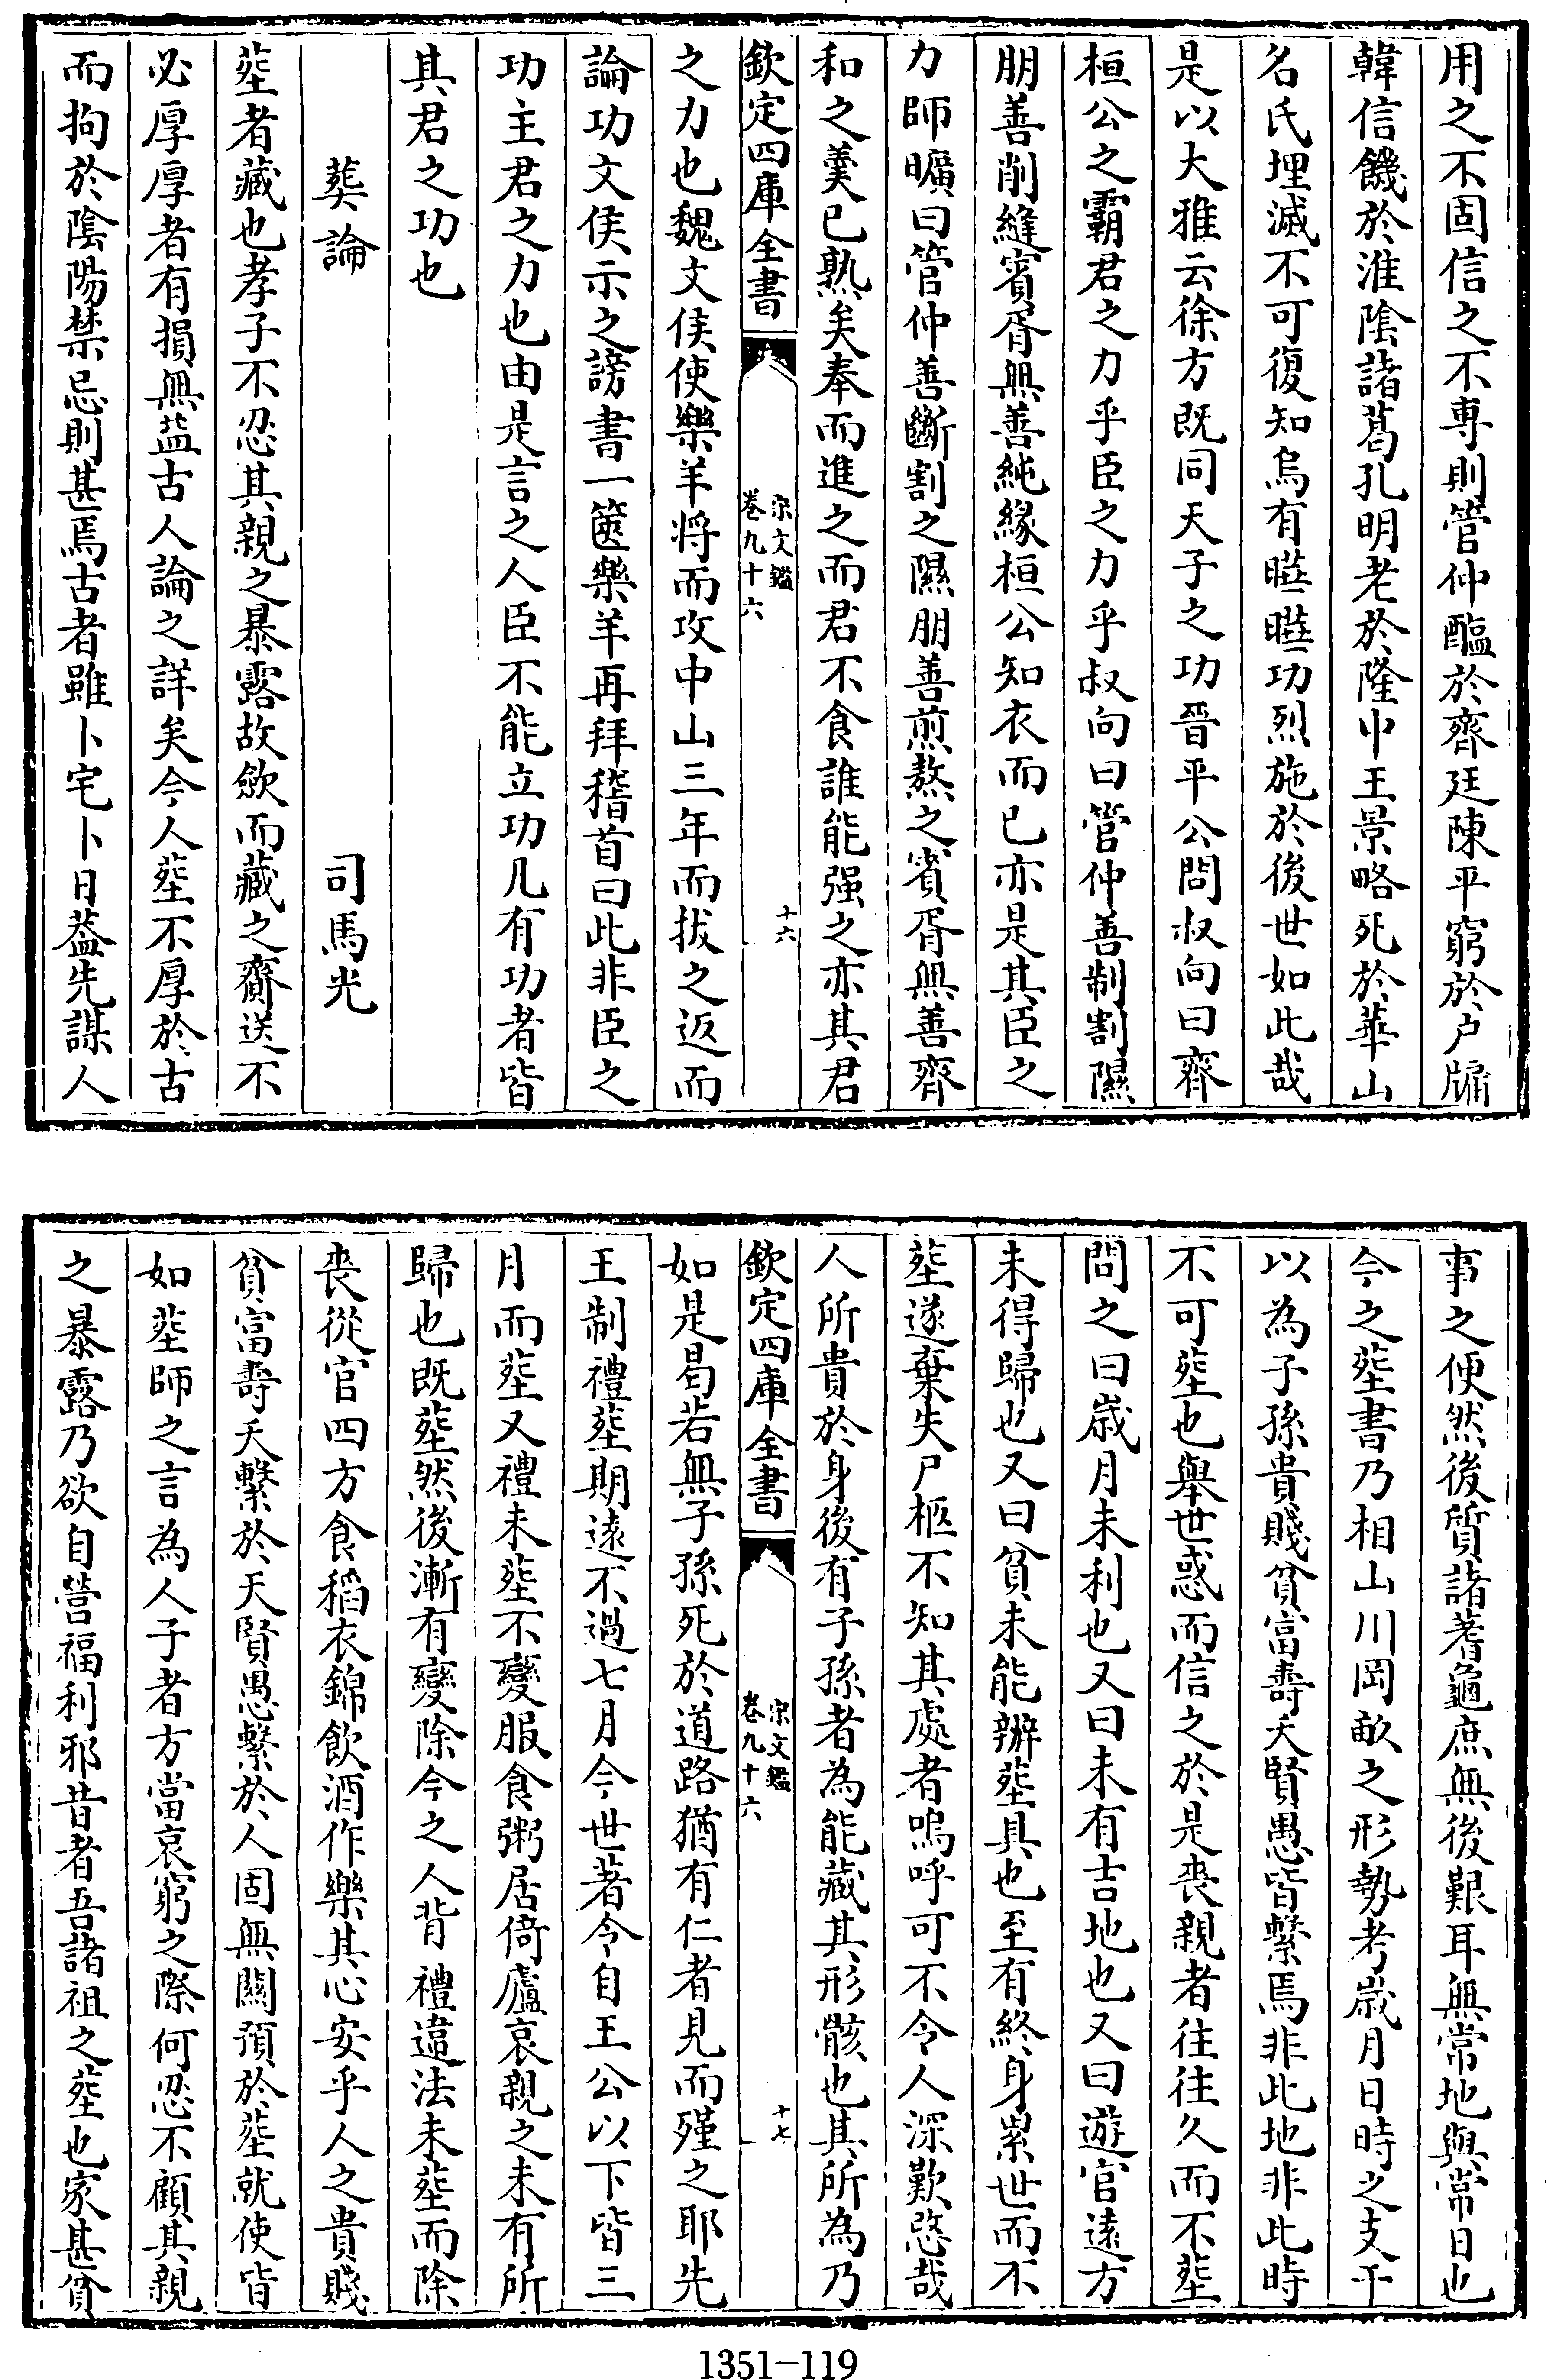 用之不固信之不専則管仲醢於齊廷陳平窮於户牖
韓信饑於淮隂諸葛孔明老於隆中王景略死於華山
名氏埋滅不可復知烏有曀曀功烈施於後世如此哉
是以大雅云徐方既同天子之功晉平公問叔向曰齊
桓公之霸君之力乎臣之力乎叔向曰管仲善制割隰
朋善削縫賓胥無善純緣桓公知衣而已亦是其臣之
力師曠曰管仲善斷割之隰朋善煎熬之賓胥無善齊
和之羹已熟矣奉而進之而君不食誰能强之亦其君
欽定四庫全書
宋文鑑
卷九十六
十六
之力也魏文侯使樂羊将而攻中山三年而拔之返而
論功文侯示之謗書一篋樂羊再拜稽首曰此非臣之
功主君之力也由是言之人臣不能立功凡有功者皆
其君之功也
葬論
司馬光
塟者藏也孝子不忍其親之暴露故歛而藏之齎送不
必厚厚者有損無益古人論之詳矣今人塟不厚於古
而拘於隂陽禁忌則甚焉古者雖卜宅卜日葢先謀人
事之便然後質諸蓍龜庶無後艱耳無常地與常日也
今之塟書乃相山川岡畝之形勢考歳月日時之支干
以為子孫貴賤貧富壽夭賢愚皆繫焉非此地非此時
不可塟也舉世惑而信之於是喪親者往往久而不塟
問之曰歳月未利也又曰未有吉地也又曰遊官逺方
未得歸也又曰貧未能辦塟具也至有終身累世而不
塟遂棄失尸柩不知其處者嗚呼可不令人深歎愍哉
人所貴於身後有子孫者為能藏其形骸也其所為乃
欽定四庫全書
宋文鑑
卷九十六
十七
如是曷若無子孫死於道路猶有仁者見而殣之耶先
王制禮塟期逺不過七月今世著令自王公以下皆三
月而塟又禮未塟不變服食粥居倚廬哀親之未有所
歸也既塟然後漸有變除今之人背禮違法未塟而除
喪從官四方食稻衣錦飲酒作樂其心安乎人之貴賤
貧富壽夭繫於天賢愚繫於人固無關預於塟就使皆
如塟師之言為人子者方當哀窮之際何忍不顧其親
之暴露乃欲自營福利邪昔者吾諸祖之塟也家甚貧
1351-119